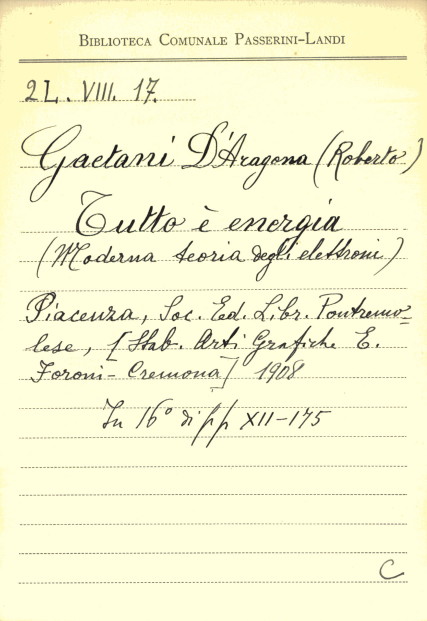 BIBLIOTECA COMUNALE PASSERINI-LANDI
2L. VIII. 17.
Gaetani D'Aragona (Roberto)
Tutto è energia
(Moderna teoria degli elettroni)
Piacenza, Soc. Ed. Libr. Pontremo-
lese, [Stab. Arti Grafiche E.
Foroni-Cremona] 1908
In 16° di pp XII-175
C